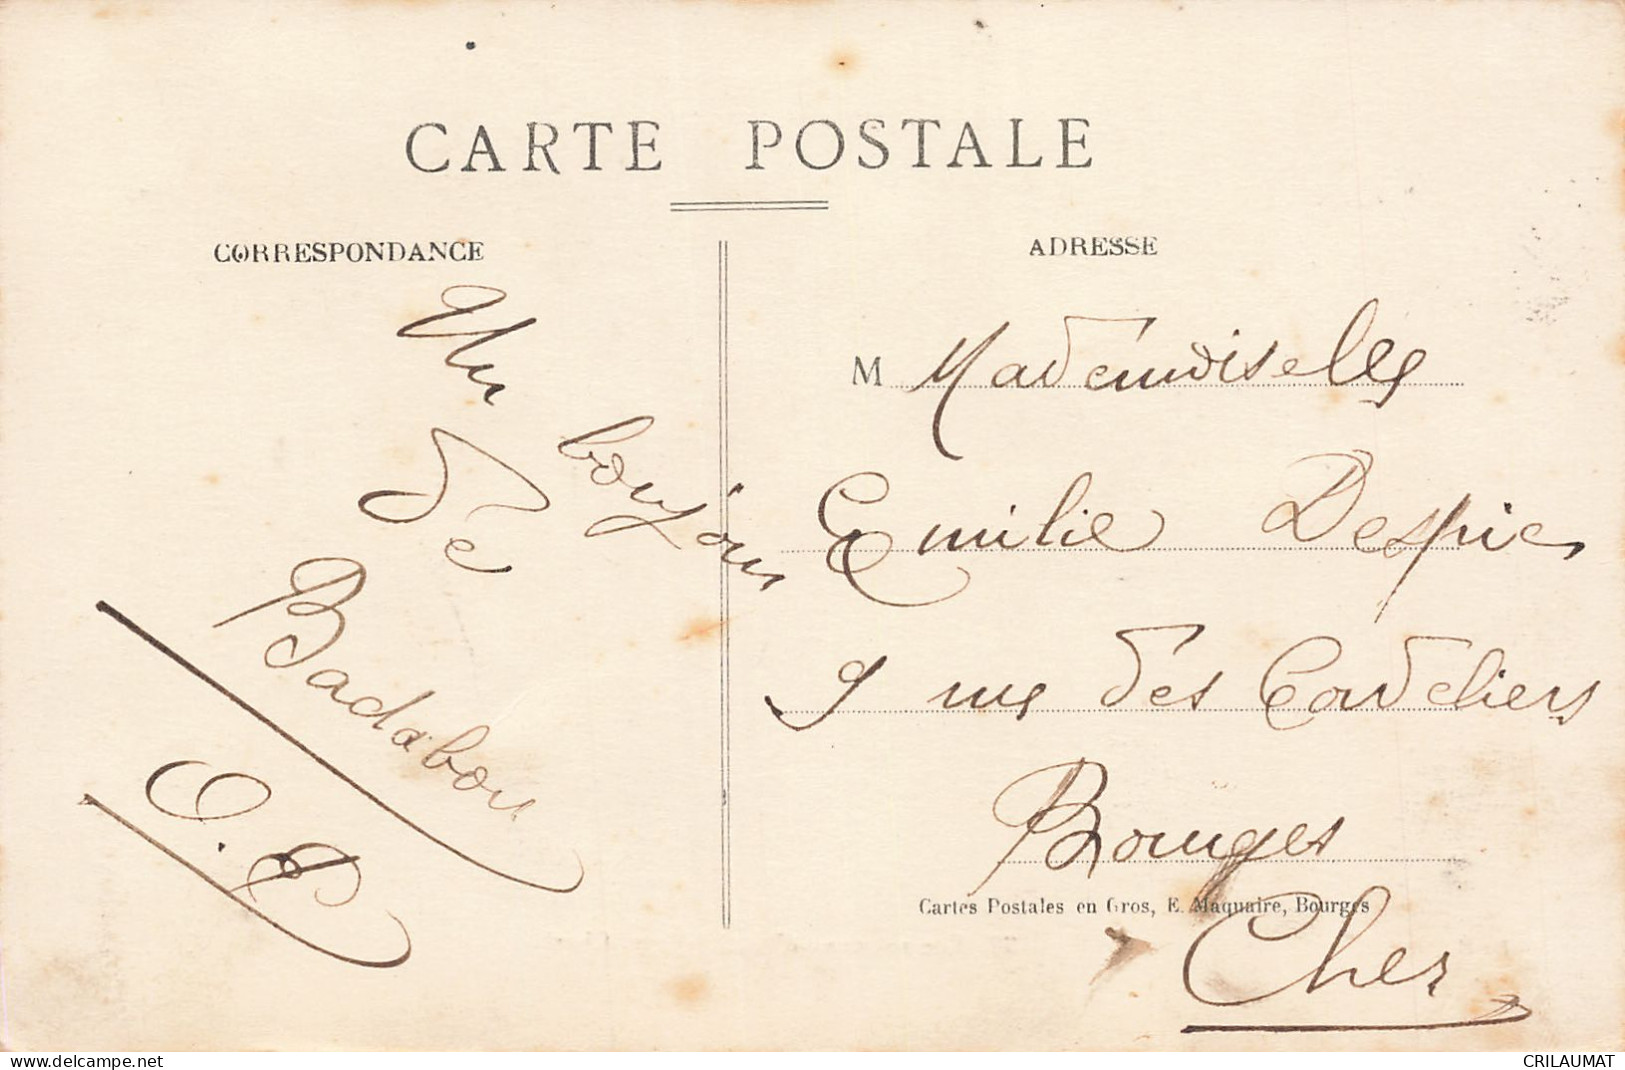 CARTE POSTALE
CORRESPONDANCE
Un bonjour
de
Badabou
ADRESSE
M Mademoiselle
Emilie Despies
9 rue des Cordeliers
Bourges
Cher
Cartes Postales en Gros, E. Maquaire, Bourges
https://www.delcampe.net
CRILAUMAT